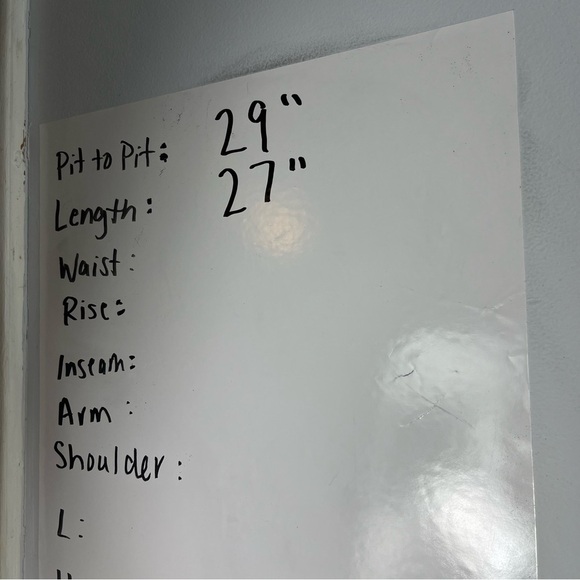 Pit to Pit: 29"
Length: 27"
Waist:
Rise:
Inseam:
Arm:
Shoulder:
L: